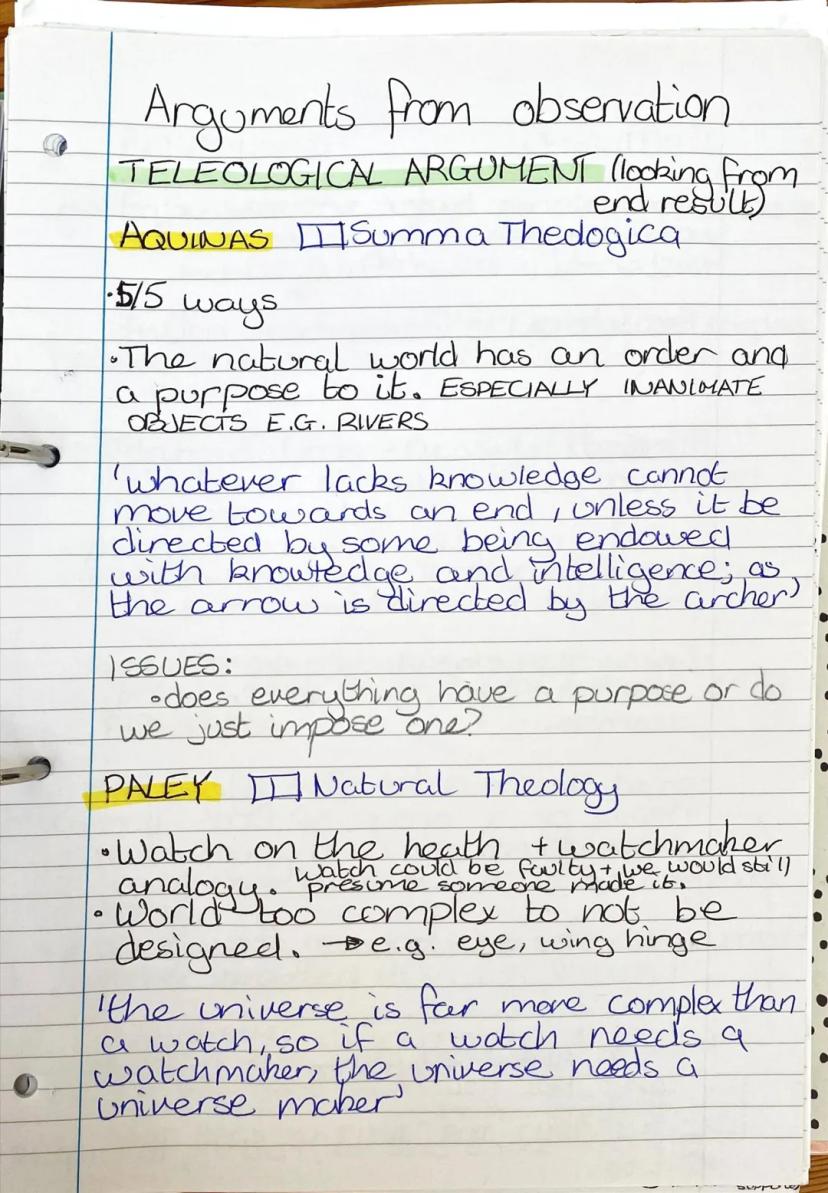 Arguments from observation
TELEOLOGICAL ARGUMENT (looking from
end result)
AQUINAS Summa Theologica
·5/5 ways
·The natural world has an order and
a purpose to it. ESPECIALLY INANIMATE
OBJECTS E.G. RIVERS
'whatever lacks knowledge cannot
move towards an end, unless it be
directed by some being endowed
with knowledge and intelligence; as
the arrow is directed by the archer'
ISSUES:
·does everything have a purpose or do
we just impose one?
PALEY Natural Theology
·Watch on the heath + watchmaker
analogy. Watch could be faulty + we would still
presume someone made it.
·World too complex to not be
designed. → e.g. eye, wing hinge
'the universe is far more complex than
a watch, so if a watch needs a
watchmaker, the universe needs a
universe maker'